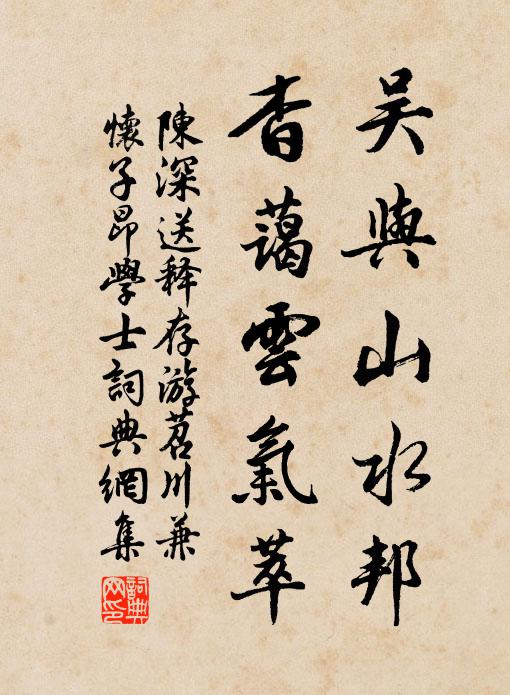 吴興山水邦
杳藹雲氣萃
陳深送释存游苕川兼
懷子昂學士詞典網集
詞典网印